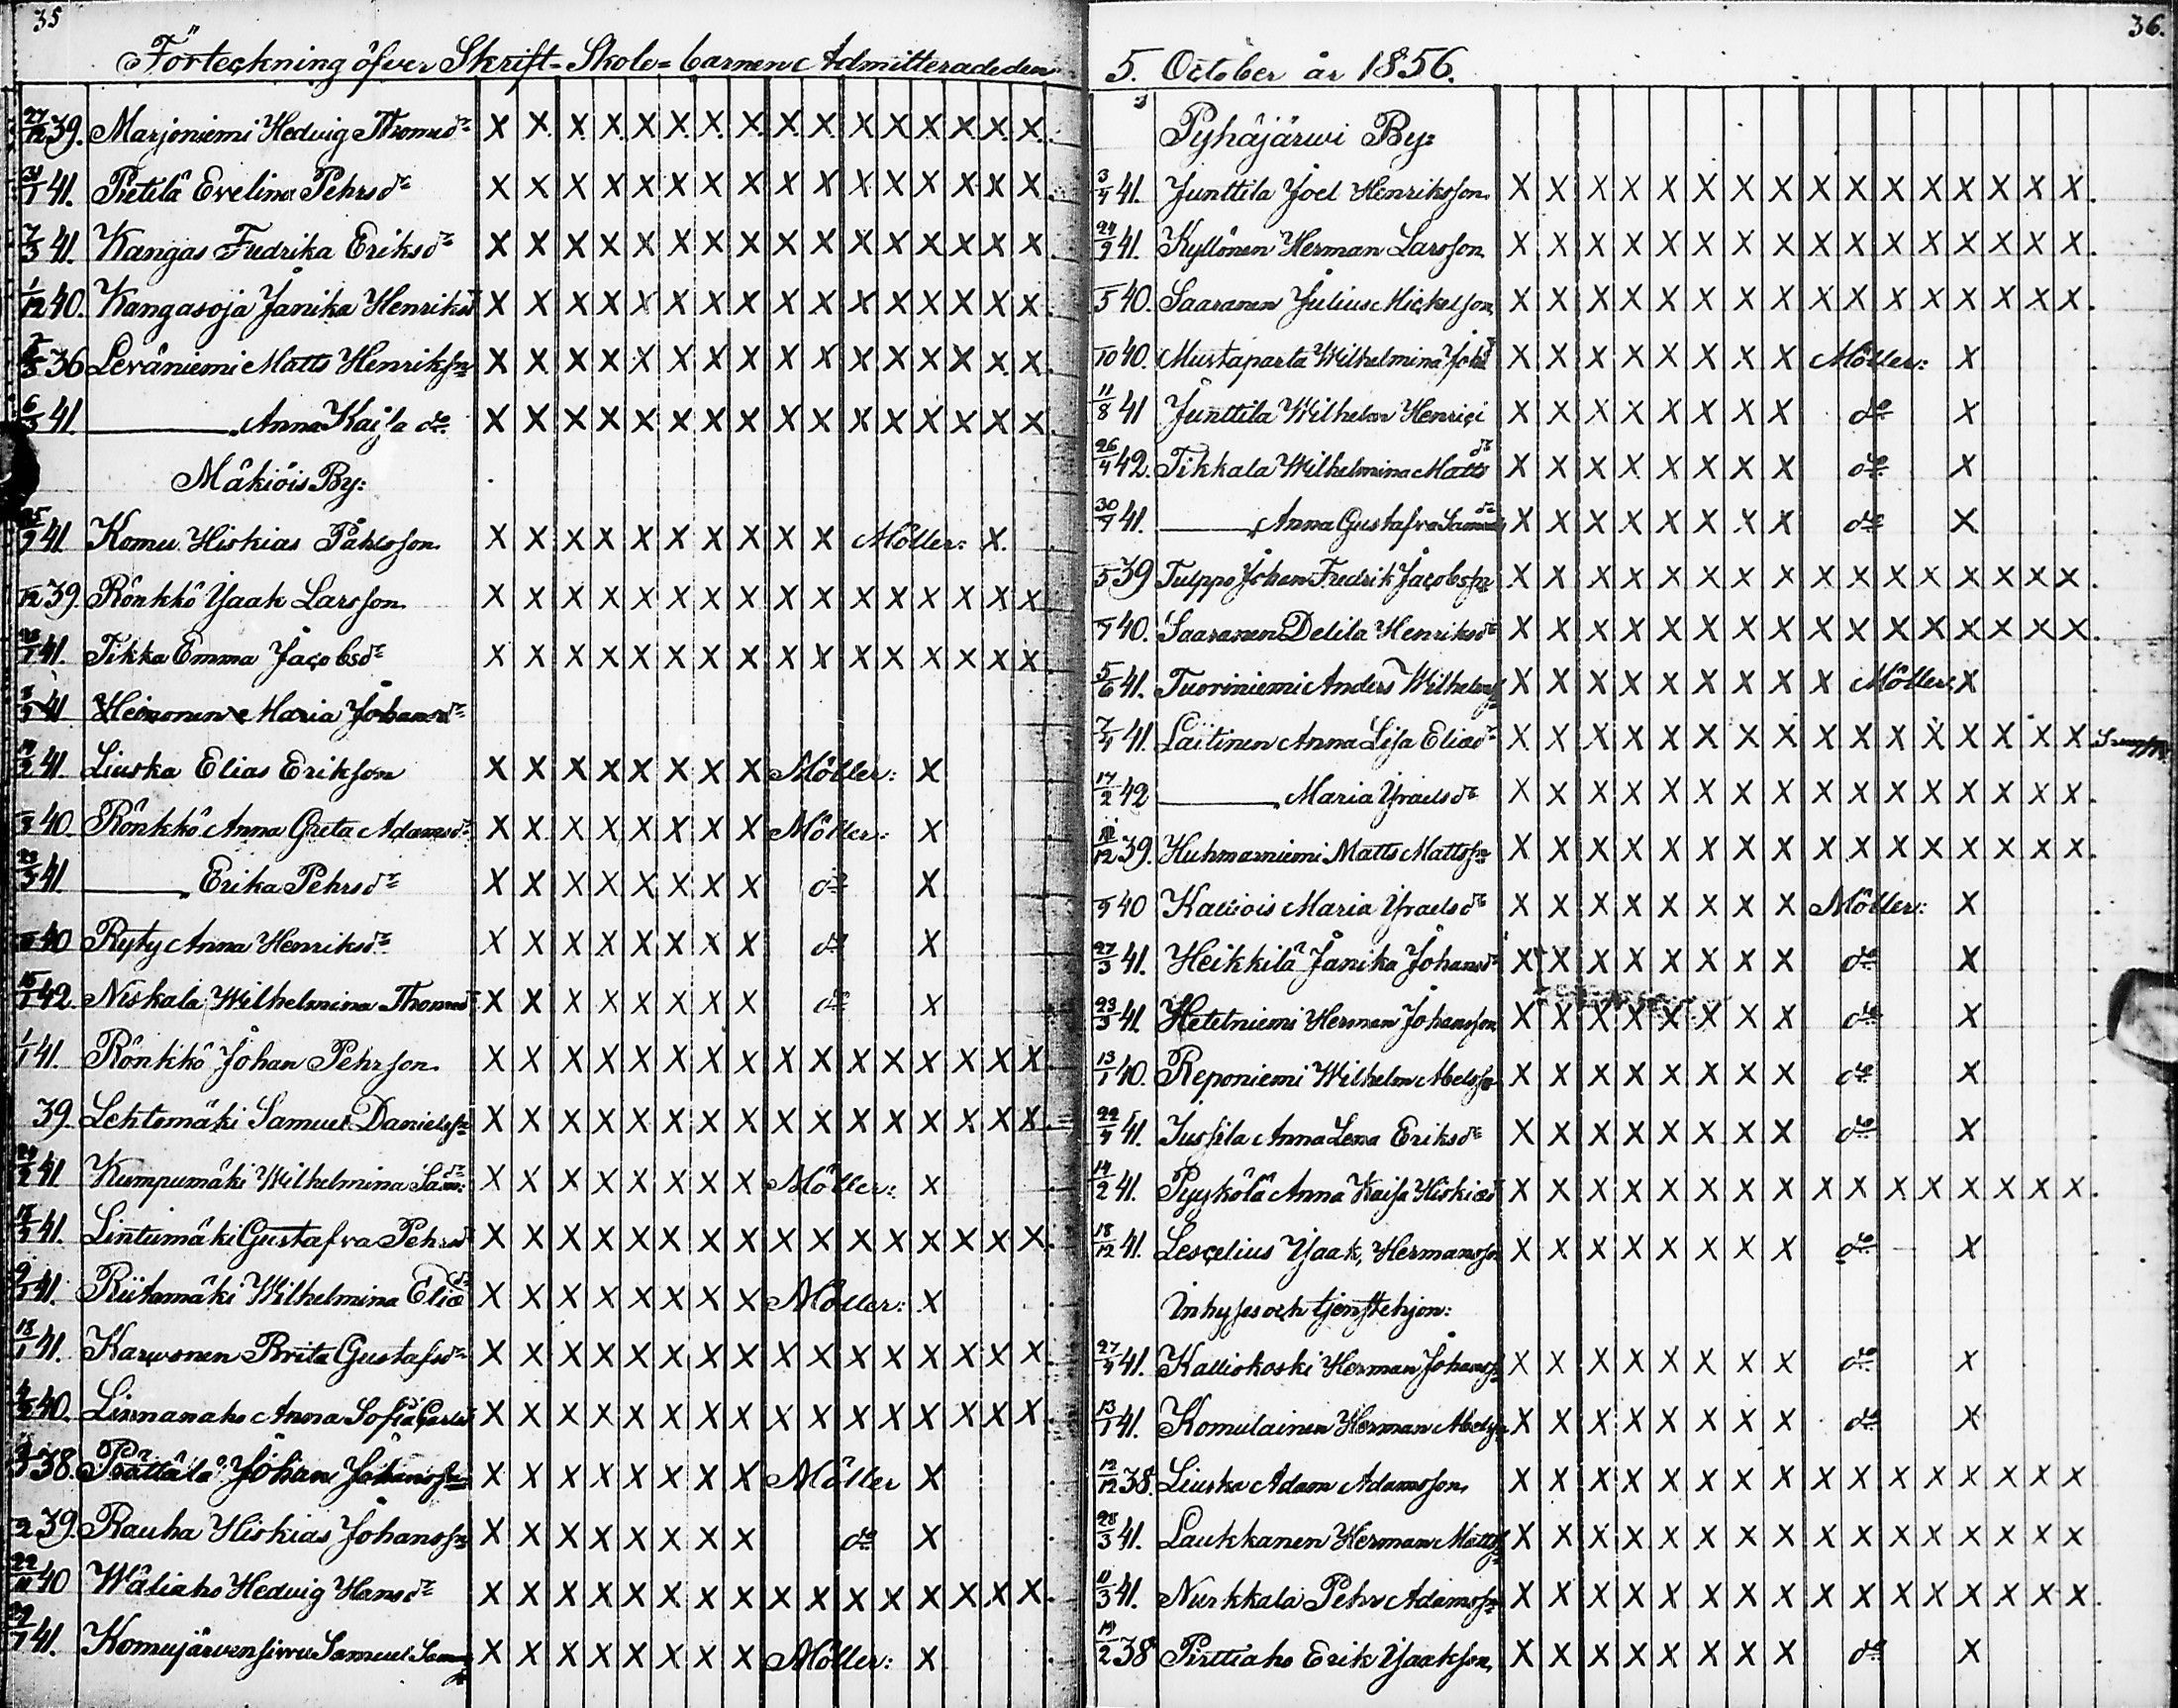 35
Förteckning öfver Skrift-Skole-barnen Admitterade den
27/12 39. Marjoniemi Hedvig Thomsdr X X X X X X X X X X X X X X X
31/1 41. Pietilä Evelina Pehrsdr X X X X X X X X X X X X X X X
7/3 41. Kangas Fredrika Eriksdr X X X X X X X X X X X X X X X
1/12 40. Kangasoja Janika Henriksd X X X X X X X X X X X X X X X
36 Leväniemi Matts Henriksn X X X X X X X X X X X X X X X
41. ——— Anna Kajsa do X X X X X X X X X X X X X X X
Mäkiöis By:
41 Komu Hiskias Påhlsson X X X X X X X X X X Möller: X
12 39. Rönkkö Isaak Larsson X X X X X X X X X X X X X X X
41. Tikka Emma Jacobsdr X X X X X X X X X X X X X X X
41 Heinonen Maria Johansdr
41 Liuska Elias Erikson X X X X X X X X Möller: X
40. Rönkkö Anna Greta Adamsdr X X X X X X X X Möller: X
41. ——— Erika Pehrsdr X X X X X X X X do X
40 Ryty Anna Henriksdr X X X X X X X X do X
42. Niskala Wilhelmina Thomsd X X X X X X X X do X
1/1 41. Rönkkö Johan Pehrson X X X X X X X X X X X X X X X
39. Lehtomäki Samuel Danielsn X X X X X X X X X X X X X X X
41 Kumpumäki Wilhelmina Sam: dr X X X X X X X X Möller: X
41. Lintumäki Gustafva Pehrsd X X X X X X X X X X X X X X X
41. Riitamäki Wilhelmina Eliædr X X X X X X X X Möller: X
18/1 41. Karvonen Brita Gustafsdr X X X X X X X X X X X X X X X
40. Linnanaho Anna Sofia Carlsd X X X X X X X X X X X X X X X
38. Prättälä Johan Johansson X X X X X X X X Möller X
39. Rauha Hiskias Johanssn X X X X X X X X do X
22/11 40 Wäliaho Hedvig Hansdr X X X X X X X X X X X X X X X
41. Komujärvensivu Samuel X X X X X X X X Möller: X
36.
5. October år 1856.
Pyhäjärvi By:
3/4 41. Junttila Joel Henriksson X X X X X X X X X X X X X X X X
24/9 41. Kyllönen Herman Larsson X X X X X X X X X X X X X X X X
5 40. Saaranen Julius Mickelson X X X X X X X X X X X X X X X X
10 40. Mustaparta Wilhelmina Johd X X X X X X X X Möller: X
11/8 41 Junttila Wilhelm Henrici X X X X X X X X do X
26/4 42. Tikkala Wilhelmina Mattsdr X X X X X X X X do X
41. ——— Anna Gustafva X X X X X X X X do X
5 39 Tulppo Johan Fredrik Jacobssn X X X X X X X X X X X X X X X X
40. Saaranen Delila Henriksdr X X X X X X X X X X X X X X X X
5/6 41. Tuoriniemi Anders Wilhelmss X X X X X X X X X Möller: X
7/4 41. Laitinen Anna Lisa Eliædr X X X X X X X X X X X X X X X X
17/2 42 ——— Maria Israelsdr X X X X X X X X X X X X X X X X
12 39. Huhmarniemi Matts Mattssn X X X X X X X X X X X X X X X X
9 40 Kalliois Maria Israelsdr X X X X X X X X Möller: X
27/3 41. Heikkilä Janika Johansdr X X X X X X X X do X
23/3 41. Hetetniemi Herman Johansson X X X X X X X X do X
13/1 40. Reponiemi Wilhelm Abelsson X X X X X X X X do X
22/4 41. Jussila Anna Lena Eriksdr X X X X X X X X do X
14/2 41. Pyykölä Anna Kaisa Hiskiæd X X X X X X X X X X X X X X X X
18/12 41. Lescelius Isaak Hermansson X X X X X X X X do X
Inhyses och tjenstehjon:
27/4 41. Kalliokoski Herman Johanss X X X X X X X X do X
13/1 41. Komulainen Herman X X X X X X X X do X
12/12 38. Liuska Adam Adamsson X X X X X X X X X X X X X X X X
28/3 41. Laukkanen Herman Mattss X X X X X X X X X X X X X X X X
11/3 41. Nurkkala Pehr Adamssn X X X X X X X X X X X X X X X X
19/2 38 Pirttiaho Erik Isaakson X X X X X X X X do X